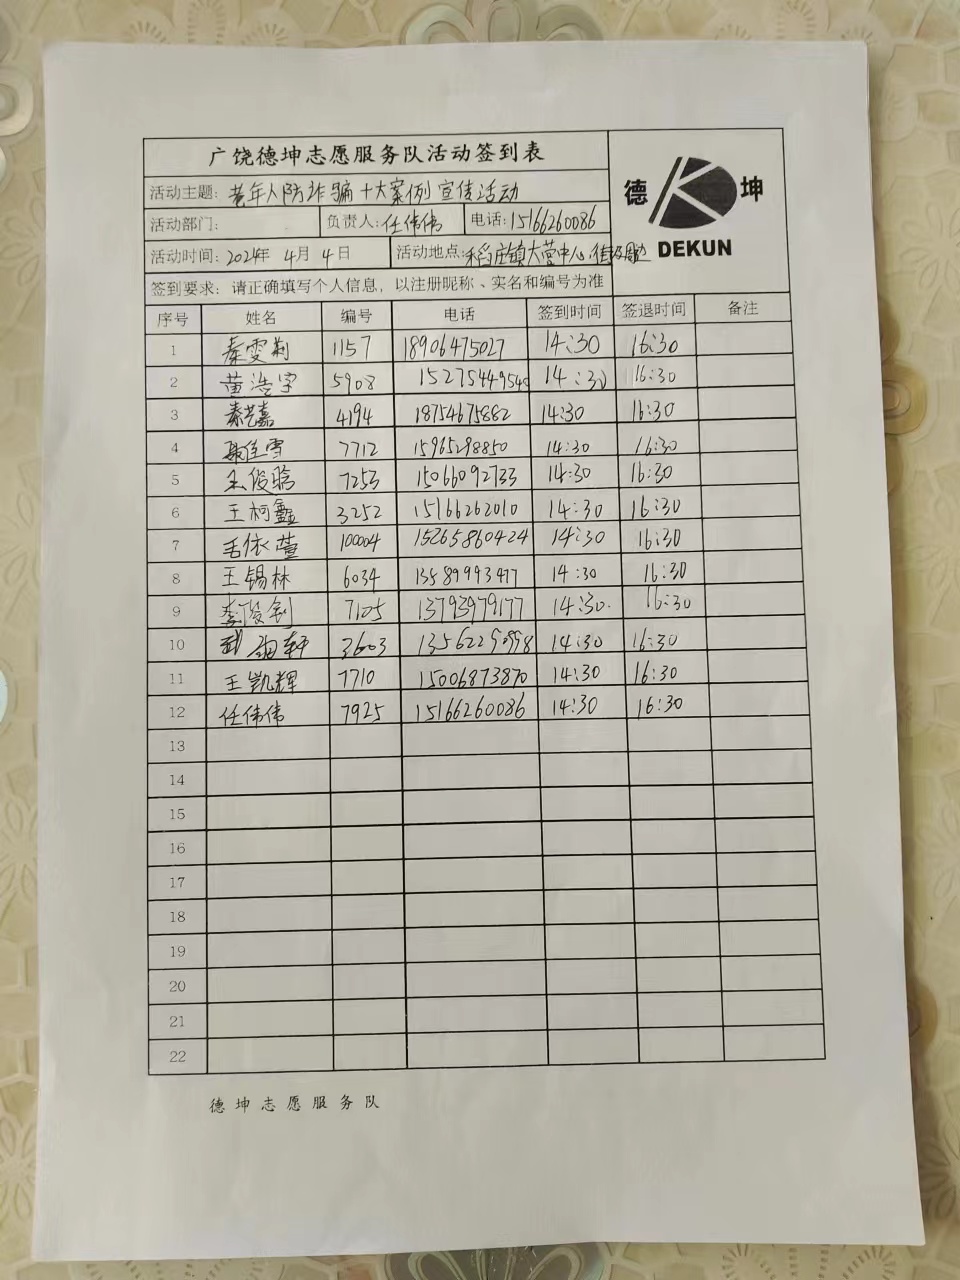 广饶德坤志愿服务队活动签到表
德 K 坤
DEKUN
活动主题：老年人防诈骗十大案例宣传活动
活动部门： 负责人：任伟伟 电话：15166260086
活动时间：2024年 4月 4日 活动地点：稻庄镇大营中心佳苑周边
签到要求：请正确填写个人信息，以注册昵称、实名和编号为准
序号 姓名 编号 电话 签到时间 签退时间 备注
1 秦雯莉 1157 18906475027 14:30 16:30
2 苗浩宇 5908 1527544954 14:30 16:30
3 秦艺嘉 4194 18754675882 14:30 16:30
4 佳雪 7712 15965298850 14:30 16:30
5 王俊晗 7253 15066092733 14:30 16:30
6 王柯鑫 3252 15166262010 14:30 16:30
7 毛依萱 100004 15265860424 14:30 16:30
8 王锡林 6034 13589993477 14:30 16:30
9 李俊 7105 13793979177 14:30 16:30
10 轩 3603 14:30 16:30
11 王凯辉 7710 15006873870 14:30 16:30
12 任伟伟 7925 15166260086 14:30 16:30
13
14
15
16
17
18
19
20
21
22
德坤志愿服务队